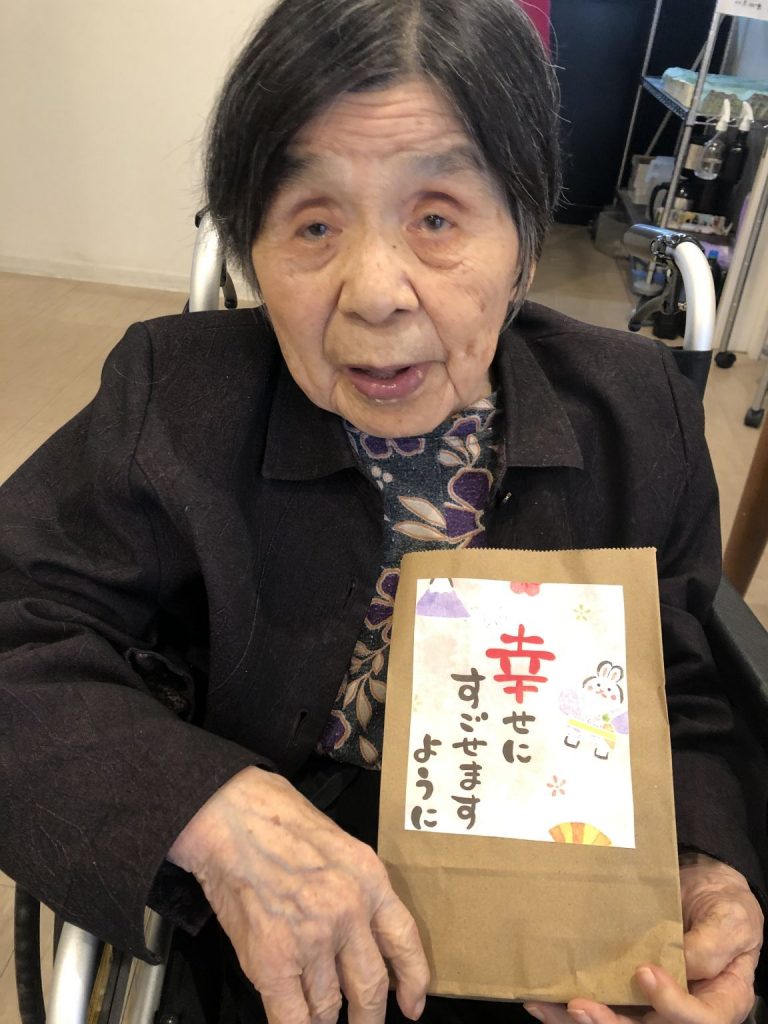 幸せに
すごせます
ように